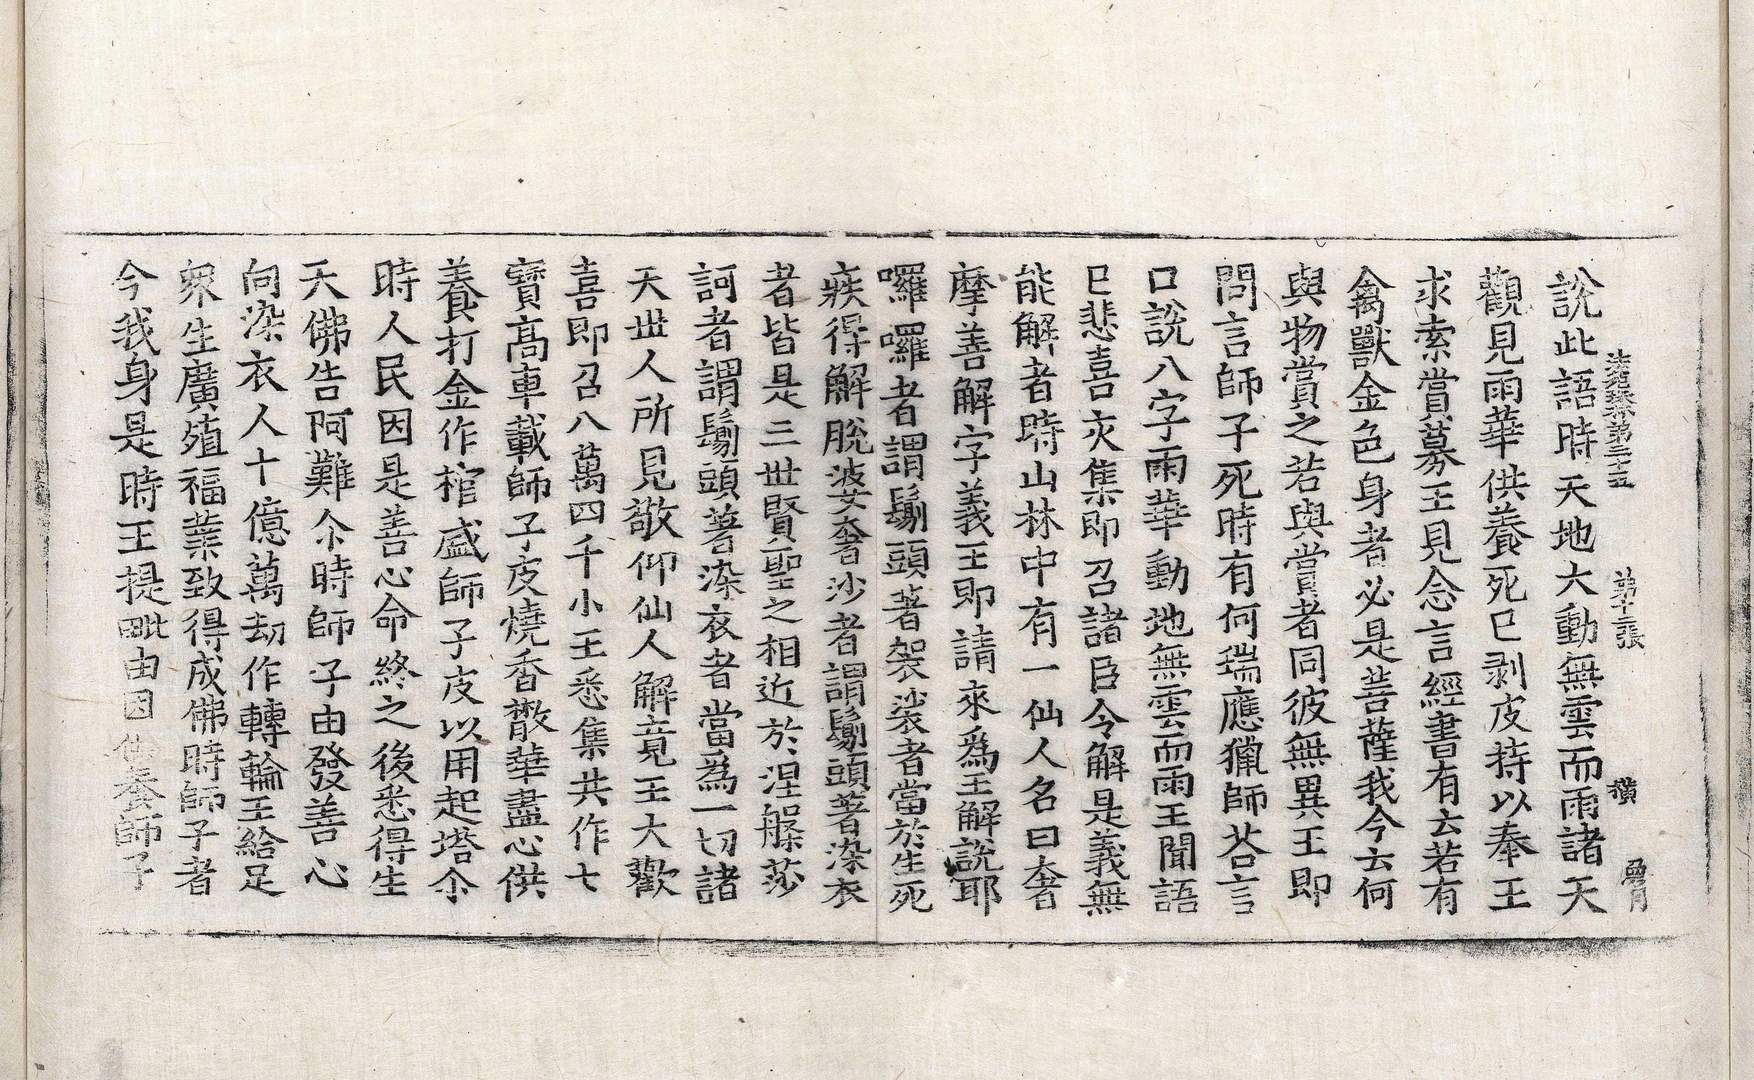 法苑珠林第三十五　第十二張　橫
說此語時天地大動無雲而雨諸天
觀見雨華供養死已剥皮持以奉王
求索賞募王見念言經書有云若有
禽獸金色身者必是菩薩我今云何
與物賞之若與賞者同彼無異王即
問言師子死時有何瑞應獵師荅言
口說八字雨華動地無雲而雨王聞語
已悲喜交集即召諸臣令解是義無
能解者時山林中有一仙人名曰奢
摩善解字義王即請來爲王解說耶
囉囉者謂鬀頭著袈裟者當於生死
疾得解脫婆奢沙者謂鬀頭著染衣
者皆是三世賢聖之相近於涅槃莎
訶者謂鬀頭著染衣者當爲一切諸
天世人所見敬仰仙人解竟王大歡
喜即召八萬四千小王悉集共作七
寶高車載師子皮燒香散華盡心供
養打金作棺盛師子皮以用起塔尒
時人民因是善心命終之後悉得生
天佛告阿難尒時師子由發善心
向染衣人十億萬劫作轉輪王給足
衆生廣殖福業致得成佛時師子者
今我身是時王提毗由因供養師子